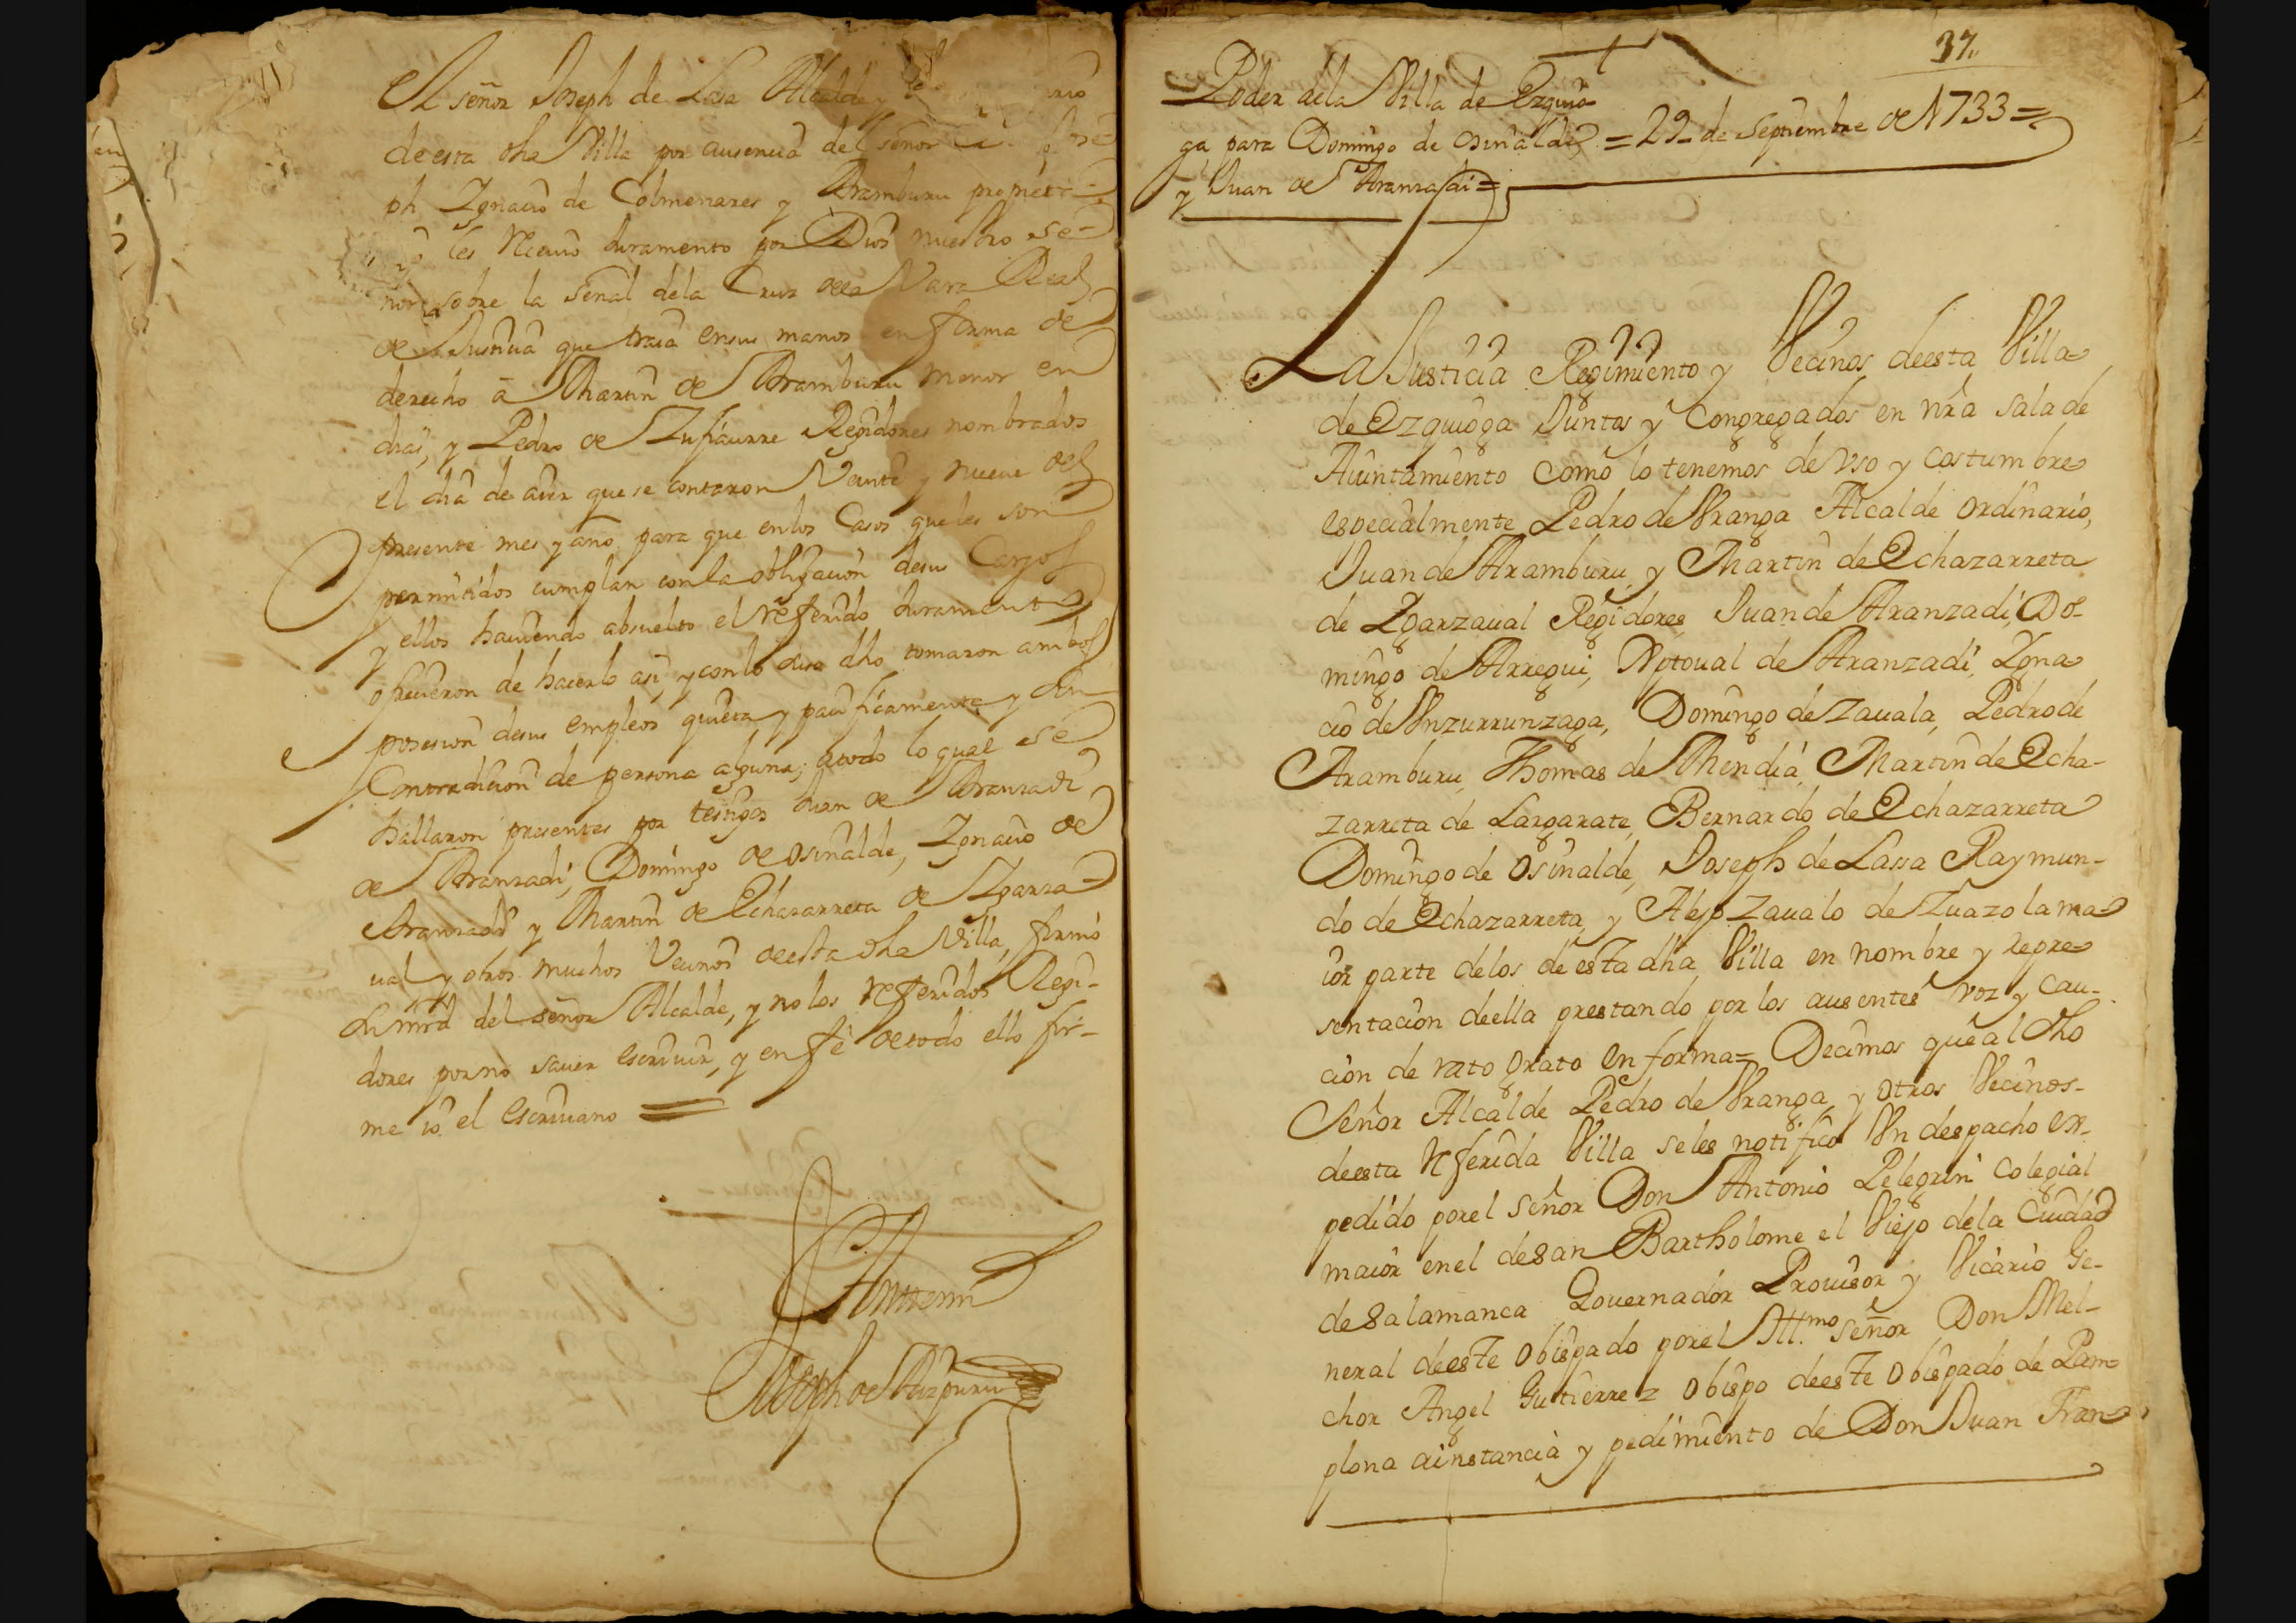 El señor Joseph de Lasa Alcalde y
de esta dha Villa por ausencia del señor
ph Ygnacio de Colmenares y Aramburu propieta-
les reciuio Juramento por Dios nuestro se-
ñor, sobre la señal dela Cruz dela Vara Real
de Justicia que traia ensus manos en forma de
derecho a Martin de Aramburu menor en
dias, y Pedro de Zufiaurre Regidores nombrados
el dia de aier que se contaron Veinte y nueue del
presente mes y año para que enlos Casos queles son
permitidos cumplan con la obligacion desus Cargos
y ellos hauiendo absuelto el referido Juramento
ofrecieron de hacerlo asi, y con lo dho tomaron ambos
posesion desus empleos quieta y pacificamente y sin
Contradicion de persona alguna; atodo lo qual se
hallaron presentes por testigos Juan de Aranzadi
de Aranzadi, Domingo de Osinalde, Ygnacio de
Aranzadi y Martin de Echazarreta de Ygarza-
ual y otros muchos Vecinos deesta dha Villa, firmó
su mrd del señor Alcalde, y no los referidos Regi-
dores por no sauer escriuir, y en fe de todo ello fir-
me io el escriuano =
Ante mi
Joseph de Aizpuru
37
Poder dela Villa de Ezquio-
ga para Domingo de Osinalde = 29 de Septiembre de 1733 =
y Juan de Aranzadi =
La Justicia Regimiento y Vecinos deesta Villa
de Ezquioga Juntos y Congregados en nra sala de
Aiuntamiento como lo tenemos de vso y costumbre
especialmente Pedro de Vranga Alcalde ordinario,
Juan de Aramburu y Martin de Echazarreta
de Ygarzaual Regidores Juan de Aranzadi, Do-
mingo de Arregui, Xptoual de Aranzadi, Ygna
cio de Vnzurrunzaga, Domingo de Zauala, Pedro de
Aramburu, Thomas de Mendia, Martin de Echa-
zarreta de Largarate, Bernardo de Echazarreta
Domingo de Osinalde, Joseph de Lassa Raymun-
do de Echazarreta y Alejo Zaualo de Zuazo la ma
ior parte delos de esta dha Villa en nombre y repre
sentacion deella prestando por los ausentes voz y cau-
cion de rato grato en forma = Decimos que al dho
Señor Alcalde Pedro de Vranga, y otros Vecinos-
deesta referida Villa seles notifico Vn despacho ex-
pedido porel señor Don Antonio Pelegrin Colegial
maior en el de San Bartholome el Viejo dela Ciudad
de Salamanca Gouernador Prouisor y Vicario Ge-
neral deeste Obispado porel Ill.mo señor Don Mel-
chor Angel Gutierrez Obispo deeste Obispado de Pam-
plona ainstancia y pedimiento de Don Juan Fran-